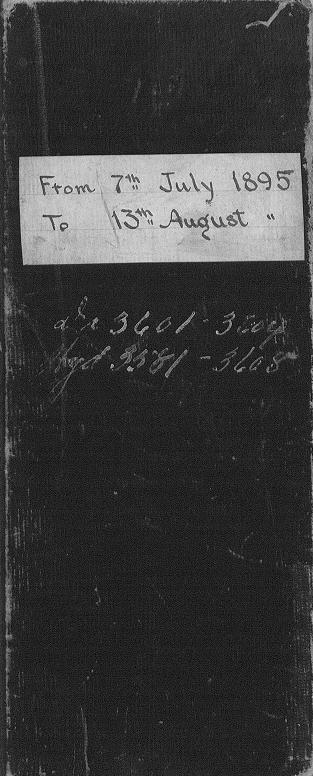 From 7th July 1895
To 13th August "
3601 -
Hyd 3581 - 3608